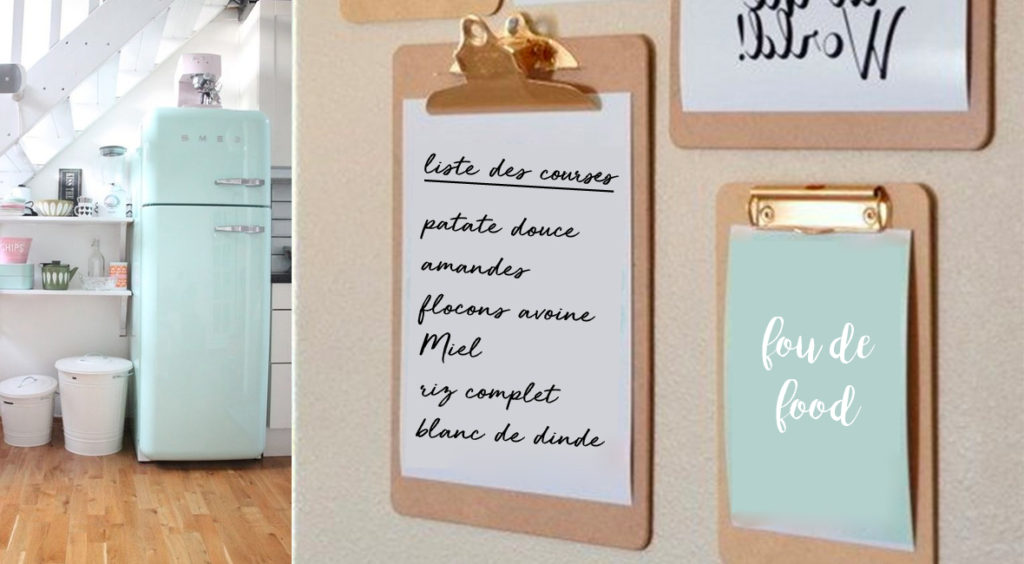 SMEG
CHIPS
World!
liste des courses
patate douce
amandes
flocons avoine
Miel
riz complet
blanc de dinde
fou de
food